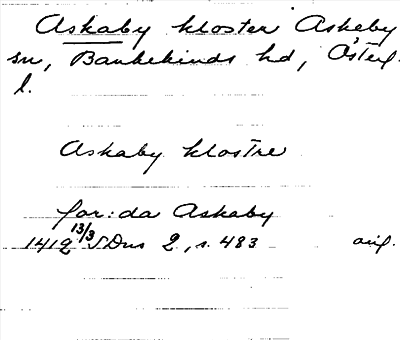 Askaby kloster Askeby
sn, Bankekinds hd, Österg.
l.
Askaby klostre
for:da Askaby
1412 13/3 SDns 2, s. 483 orig.